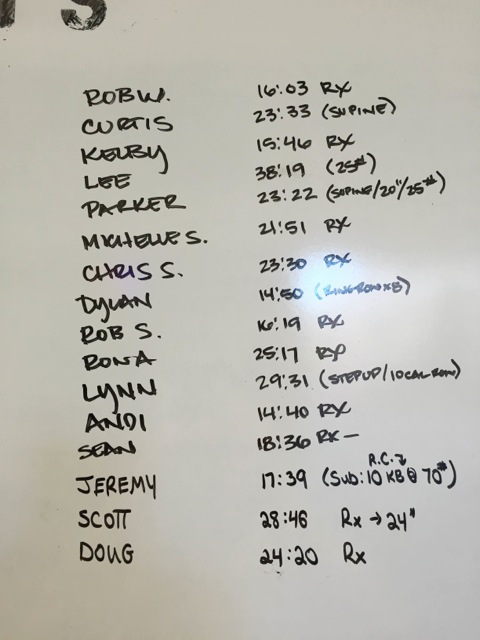 TS
ROB W. 16:03 RX
CURTIS 23:33 (SUPINE)
KELBY 15:46 RX
LEE 38:19 (25#)
PARKER 23:22 (SUPINE/20"/25#)
MICHELLE S. 21:51 RX
CHRIS S. 23:30 RX
DYLAN 14:50
ROB S. 16:19 RX
RONA 25:17 RX
LYNN 29:31 (STEPUP/10CAL ROW)
ANDI 14:40 RX
SEAN 18:36 RX —
R.C.
JEREMY 17:39 (Sub: 10 KB @ 70#)
SCOTT 28:46 Rx → 24"
DOUG 24:20 Rx